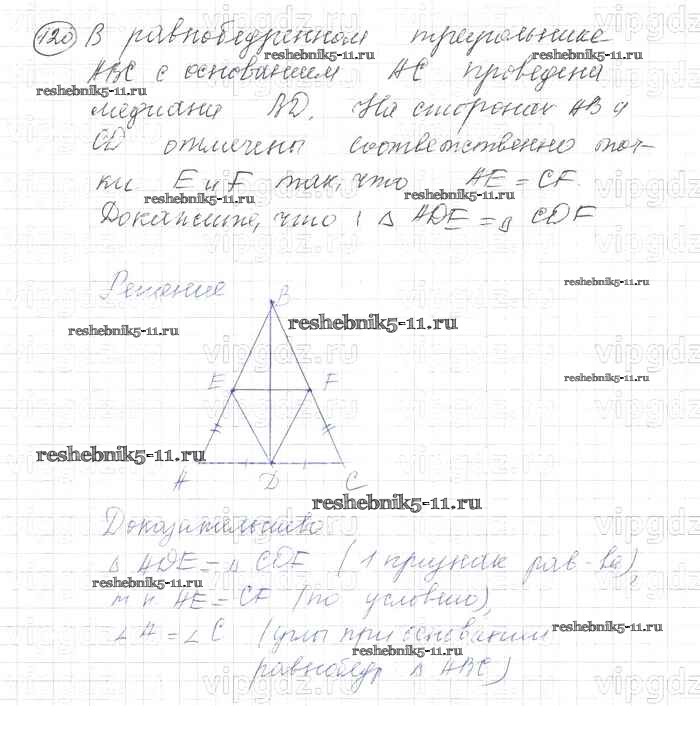 120 В равнобедренном треугольнике
reshebnik5-11.ru reshebnik5-11.ru
ABC с основанием AC проведена
reshebnik5-11.ru
медиана BD. На сторонах AB и
CB отмечены соответственно точ-
ки E и F так, что AE = CF.
reshebnik5-11.ru reshebnik5-11.ru
Докажите, что : △ ADE = △ CDF
Решение
reshebnik5-11.ru
B
reshebnik5-11.ru reshebnik5-11.ru
vipgdz.ru
E F
reshebnik5-11.ru
reshebnik5-11.ru
A D C
reshebnik5-11.ru
Доказательство
△ ADE = △ CDF (1 признак рав-ва),
reshebnik5-11.ru
т к AE = CF (по условию),
∠ A = ∠ C (углы при основании
reshebnik5-11.ru
reshebnik5-11.ru
равнобедр △ ABC)